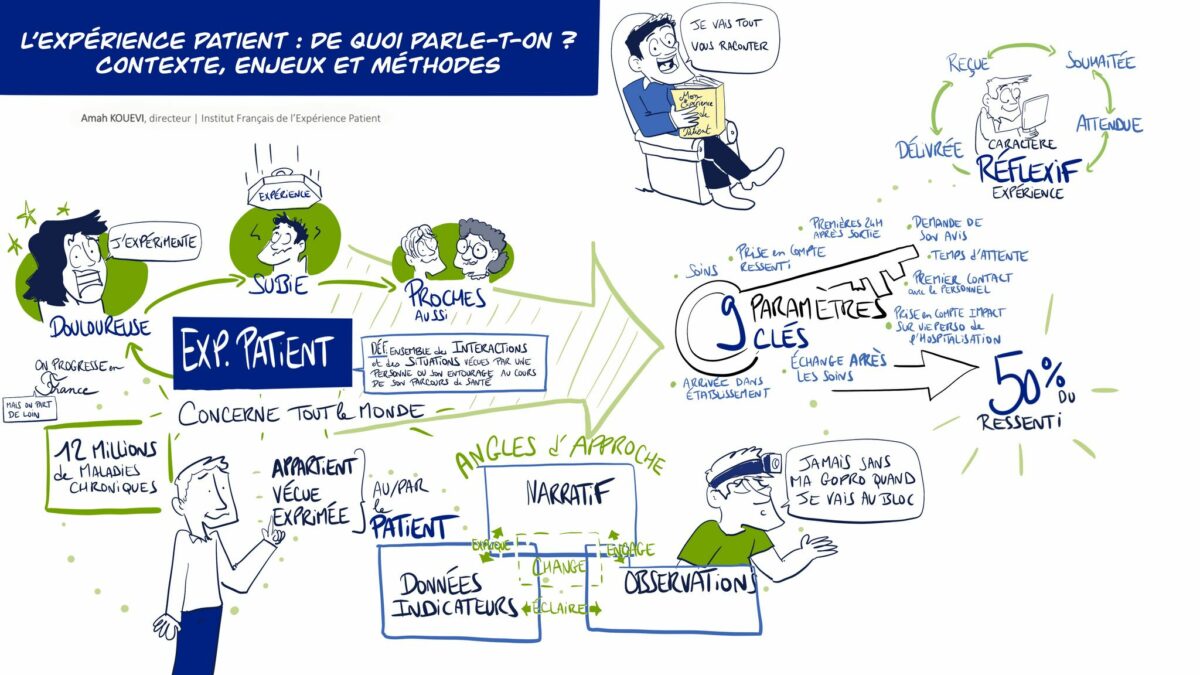 L'EXPÉRIENCE PATIENT : DE QUOI PARLE-T-ON ?
CONTEXTE, ENJEUX ET MÉTHODES
Amah KOUEVI, directeur | Institut Français de l'Expérience Patient
JE VAIS TOUT
VOUS RACONTER
Mon
Expérience
de
Patient
REÇUE
SOUHAITÉE
ATTENDUE
DÉLIVRÉE
CARACTÈRE
RÉFLEXIF
EXPÉRIENCE
EXPÉRIENCE
J'EXPÉRIMENTE
DOULOUREUSE
SUBIE
PROCHES
AUSSI
EXP. PATIENT
DÉF: ENSEMBLE des INTERACTIONS
et des SITUATIONS VÉCUES PAR UNE
PERSONNE OU SON ENTOURAGE AU COURS
DE SON PARCOURS de SANTÉ
ON PROGRESSE en
France
MAIS ON PART
DE LOIN
CONCERNE TOUT le MONDE
12 MILLIONS
de MALADIES
CHRONIQUES
APPARTIENT
VÉCUE
EXPRIMÉE
AU/PAR
le
PATIENT
SOINS
PRISE en COMPTE
RESSENTI
PREMIÈRES 24H
APRÈS SORTIE
DEMANDE DE
SON AVIS
TEMPS D'ATTENTE
PREMIER CONTACT
avec le PERSONNEL
PRISE en COMPTE IMPACT
SUR VIE PERSO de
l'HOSPITALISATION
9 PARAMÈTRES
CLÉS
ÉCHANGE APRÈS
LES SOINS
ARRIVÉE DANS
ÉTABLISSEMENT
50% DU
RESSENTI
ANGLES d'APPROCHE
NARRATIF
EXPLIQUE
ENGAGE
CHANGE
DONNÉES
INDICATEURS
ÉCLAIRE
OBSERVATIONS
JAMAIS SANS
MA GOPRO QUAND
JE VAIS AU BLOC